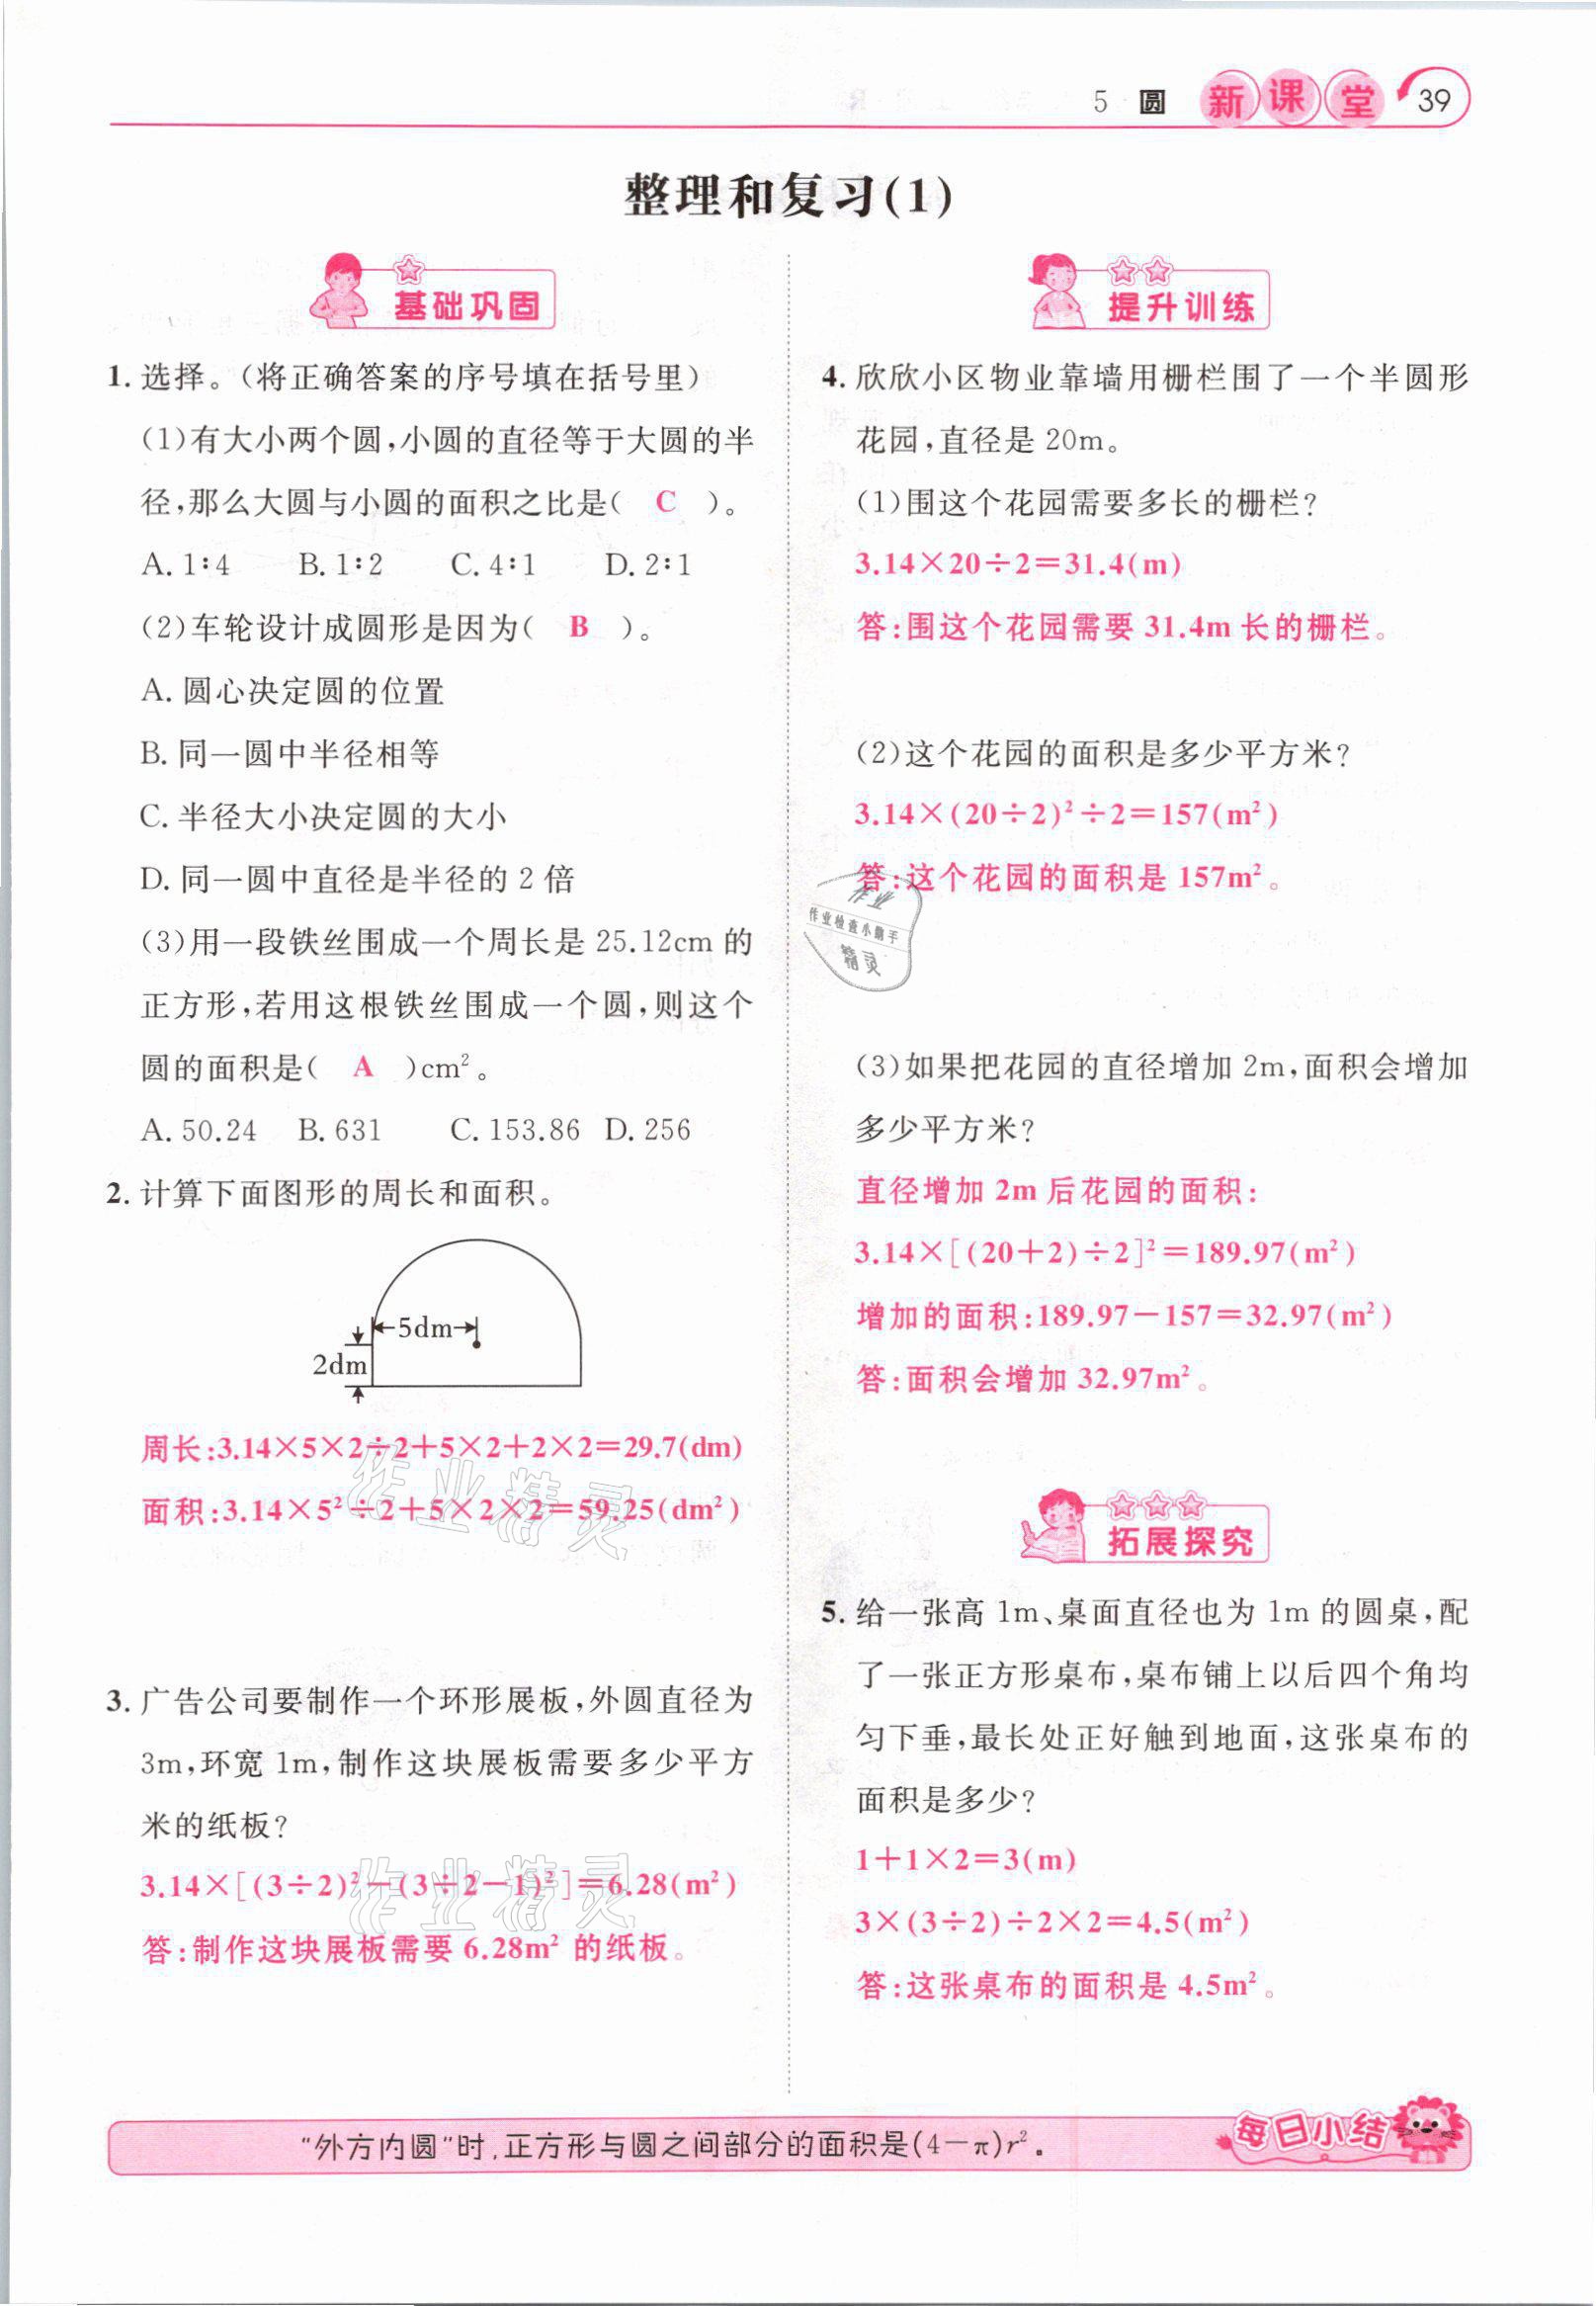 5 圆 新课堂 39
整理和复习(1)
基础巩固
1. 选择。(将正确答案的序号填在括号里)
(1)有大小两个圆,小圆的直径等于大圆的半
径,那么大圆与小圆的面积之比是( C )。
A. 1∶4 B. 1∶2 C. 4∶1 D. 2∶1
(2)车轮设计成圆形是因为( B )。
A. 圆心决定圆的位置
B. 同一圆中半径相等
C. 半径大小决定圆的大小
D. 同一圆中直径是半径的 2 倍
(3)用一段铁丝围成一个周长是 25.12cm 的
正方形,若用这根铁丝围成一个圆,则这个
圆的面积是( A )cm²。
A. 50.24 B. 631 C. 153.86 D. 256
2. 计算下面图形的周长和面积。
5dm
2dm
周长:3.14×5×2÷2+5×2+2×2=29.7(dm)
面积:3.14×5²÷2+5×2×2=59.25(dm²)
3. 广告公司要制作一个环形展板,外圆直径为
3m,环宽 1m,制作这块展板需要多少平方
米的纸板?
3.14×[(3÷2)²-(3÷2-1)²]=6.28(m²)
答:制作这块展板需要 6.28m² 的纸板。
提升训练
4. 欣欣小区物业靠墙用栅栏围了一个半圆形
花园,直径是 20m。
(1)围这个花园需要多长的栅栏?
3.14×20÷2=31.4(m)
答:围这个花园需要 31.4m 长的栅栏。
(2)这个花园的面积是多少平方米?
3.14×(20÷2)²÷2=157(m²)
答:这个花园的面积是 157m²。
作业
作业检查小助手
精灵
(3)如果把花园的直径增加 2m,面积会增加
多少平方米?
直径增加 2m 后花园的面积:
3.14×[(20+2)÷2]²=189.97(m²)
增加的面积:189.97-157=32.97(m²)
答:面积会增加 32.97m²。
拓展探究
5. 给一张高 1m、桌面直径也为 1m 的圆桌,配
了一张正方形桌布,桌布铺上以后四个角均
匀下垂,最长处正好触到地面,这张桌布的
面积是多少?
1+1×2=3(m)
3×(3÷2)÷2×2=4.5(m²)
答:这张桌布的面积是 4.5m²。
作业精灵
作业精灵
"外方内圆"时,正方形与圆之间部分的面积是(4-π)r²。
每日小结